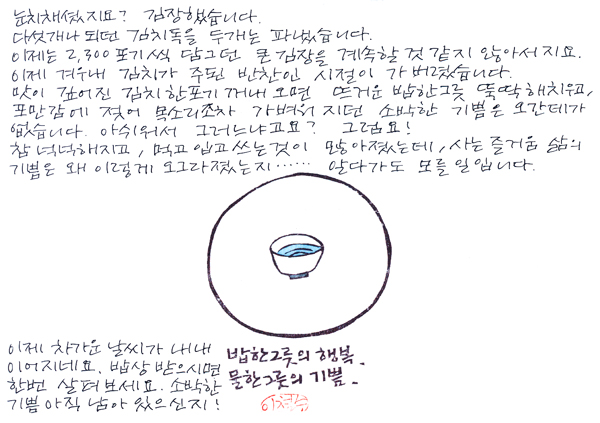 눈치채셨지요? 김장했습니다.
다섯개나 되던 김칫독을 두개는 파냈습니다.
이제는 2,300포기씩 담그던 큰 김장을 계속할 것 같지 않아서지요.
이제 겨우내 김치가 주된 반찬인 시절이 가버렸습니다.
맛이 깊어진 김치 한포기 꺼내 오면 뜨거운 밥한그릇 뚝딱 해치우고,
포만감에 젖어 목소리조차 가벼워지던 소박한 기쁨은 오간데가
없습니다. 아쉬워서 그러느냐고요? 그럼요!
참 넉넉해지고, 먹고 입고 쓰는것이 많아졌는데, 사는 즐거움 삶의
기쁨은 왜 이렇게 오그라졌는지…… 알다가도 모를 일입니다.
이제 차가운 날씨가 내내
이어지네요. 밥상 받으시면
한번 살펴보세요. 소박한
기쁨 아직 남아 있으신지!
밥한그릇의 행복.
물한그릇의 기쁨.